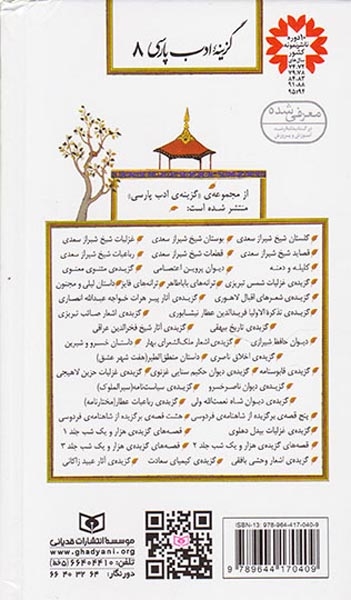 گزینهٔ ادب پارسی ۸
۱۰ دوره
ناشر نمونه
کشور
سال‌های
۷۴، ۷۲
۷۹، ۷۸
۸۴، ۸۳
۹۱، ۸۸
۹۵، ۹۴
معرفی شده
از مجموعه‌ی «گزینه‌ی ادب پارسی»
منتشر شده است:
گلستان شیخ شیراز سعدی بوستان شیخ شیراز سعدی غزلیات شیخ شیراز سعدی
قصاید شیخ شیراز سعدی قطعات شیخ شیراز سعدی رباعیات شیخ شیراز سعدی
کلیله و دمنه دیوان پروین اعتصامی گزیده‌ی مثنوی معنوی
گزیده‌ی غزلیات شمس تبریزی ترانه‌های باباطاهر ترانه‌های فایز داستان لیلی و مجنون
گزیده‌ی شعرهای اقبال لاهوری گزیده‌ی آثار پیر هرات خواجه عبدالله انصاری
گزیده‌ی تذکرة الاولیا فریدالدین عطار نیشابوری گزیده‌ی اشعار صائب تبریزی
گزیده‌ی تاریخ بیهقی گزیده‌ی آثار شیخ فخرالدین عراقی
دیوان حافظ شیرازی گزیده‌ی اشعار ملک‌الشعرای بهار داستان خسرو و شیرین
گزیده‌ی اخلاق ناصری داستان منطق‌الطیر (هفت شهر عشق)
گزیده‌ی قابوسنامه گزیده‌ی دیوان حکیم سنایی غزنوی گزیده‌ی غزلیات حزین لاهیجی
گزیده‌ی دیوان ناصرخسرو گزیده‌ی سیاست‌نامه (سیرالملوک)
گزیده‌ی دیوان شاه نعمت‌الله ولی گزیده‌ی رباعیات عطار (مختارنامه)
پنج قصه‌ی برگزیده از شاهنامه‌ی فردوسی هشت قصه‌ی برگزیده از شاهنامه‌ی فردوسی
گزیده‌ی غزلیات بیدل دهلوی قصه‌های گزیده‌ی هزار و یک شب جلد ۱
قصه‌های گزیده‌ی هزار و یک شب جلد ۲ قصه‌های گزیده‌ی هزار و یک شب جلد ۳
گزیده‌ی اشعار وحشی بافقی گزیده‌ی کیمیای سعادت گزیده‌ی آثار عبید زاکانی
موسسه انتشارات قدیانی
www.ghadyani.org
۶۶۴۰۴۴۱۰ (۵ خط)
دورنگار: ۶۶ ۴۰ ۳۲ ۶۴
ISBN-13: 978-964-417-040-9
9 789644 170409